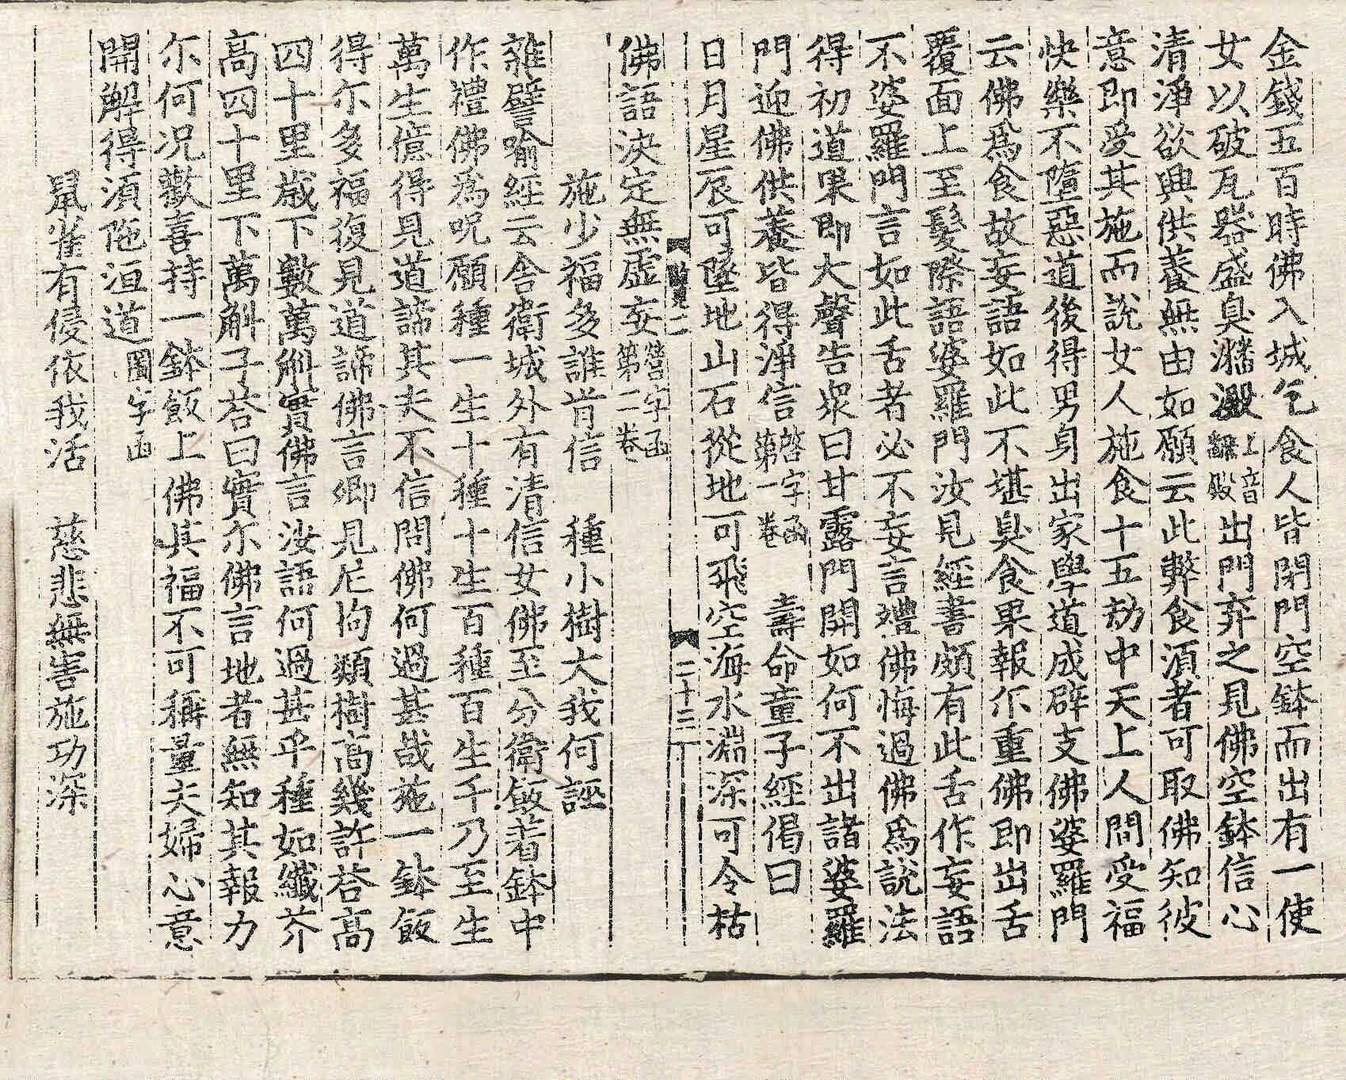 金錢五百時佛入城乞食人皆閉門空鉢而出有一使
女以破瓦器盛臭潘澱上音翻下音殿出門弃之見佛空鉢信心
清淨欲興供養無由如願云此弊食湏者可取佛知彼
意即受其施而說女人施食十五劫中天上人間受福
快樂不墮惡道後得男身出家學道成辟支佛婆羅門
云佛爲食故妄語如此不堪臭食果報尒重佛即出舌
覆面上至髮際語婆羅門汝見經書頗有此舌作妄語
不婆羅門言如此舌者必不妄言禮佛悔過佛爲說法
得初道果即大聲告衆曰甘露門開如何不出諸婆羅
門迎佛供養皆得淨信啓字函第一卷　壽命童子經偈曰
日月星辰可墜地山石從地可飛空海水淵深可令枯
二十三
佛語決定無虛妄營字函第二卷
施少福多誰肯信　種小樹大我何誣
雜譬喻經云舍衛城外有清信女佛至分衛飯著鉢中
作禮佛爲呪願種一生十種十生百種百生千乃至生
萬生億得見道諦其夫不信問佛何過甚哉施一鉢飯
得尒多福復見道諦佛言卿見尼拘類樹高幾許荅高
四十里歳下數萬斛實佛言汝語何過甚乎種如纖芥
高四十里下萬斛子荅曰實尒佛言地者無知其報力
尒何况歡喜持一鉢飯上佛其福不可稱量夫婦心意
開解得湏陁洹道圖字函
鼠雀有侵依我活　慈悲無害施功深